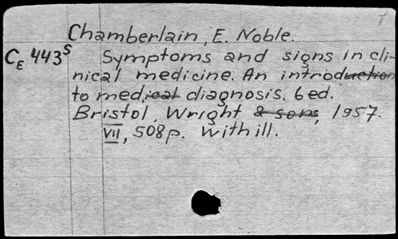 Chamberlain, E. Noble.
CE 443s Symptoms and signs in cli-
nical medicine. An introduction
to medical diagnosis. 6ed.
Bristol, Wright & sons, 1957.
VII, 508p. With ill.